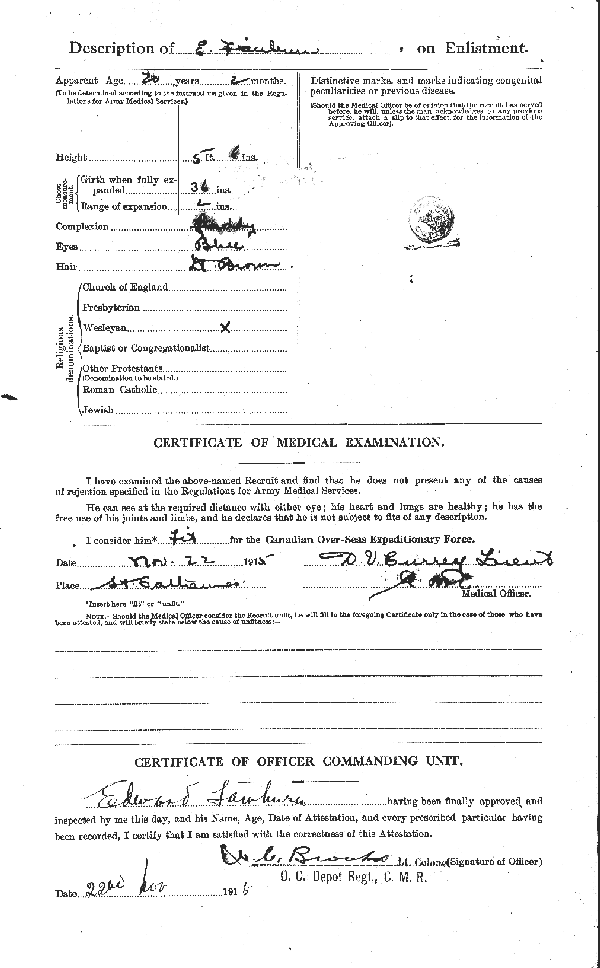 Description of E. on Enlistment.
Apparent Age 20 years 2 months.
(To be determined according to the instructions given in the Regulations for Army Medical Services.)
Distinctive marks, and marks indicating congenital
peculiarities or previous disease.
(Should the Medical Officer be of opinion that the recruit has served
before, he will, unless the man acknowledges to any previous
service, attach a slip to that effect, for the information of the
Approving Officer).
Height 5 ft. 6 ins.
Chest measurement.
Girth when fully expanded 36 ins.
Range of expansion 2 ins.
Complexion Ruddy
Eyes Blue
Hair Lt Brown
Religious denominations.
Church of England
Presbyterian
Wesleyan X
Baptist or Congregationalist
Other Protestants
(Denomination to be stated.)
Roman Catholic
Jewish
CERTIFICATE OF MEDICAL EXAMINATION.
I have examined the above-named Recruit and find that he does not present any of the causes
of rejection specified in the Regulations for Army Medical Services.
He can see at the required distance with either eye; his heart and lungs are healthy; he has the
free use of his joints and limbs, and he declares that he is not subject to fits of any description.
I consider him* fit for the Canadian Over-Seas Expeditionary Force.
Date Nov. 22 1915 Lieut
Place St Catharines
Medical Officer.
*Insert here "fit" or "unfit."
NOTE.- Should the Medical Officer consider the Recruit unfit, he will fill in the foregoing Certificate only in the case of those who have
been attested, and will briefly state below the cause of unfitness:-
CERTIFICATE OF OFFICER COMMANDING UNIT.
Edward having been finally approved and
inspected by me this day, and his Name, Age, Date of Attestation, and every prescribed particular having
been recorded, I certify that I am satisfied with the correctness of this Attestation.
C. Brooks Lt. Colonel (Signature of Officer)
O. C. Depot Regt., C. M. R.
Date 22nd Nov 1915